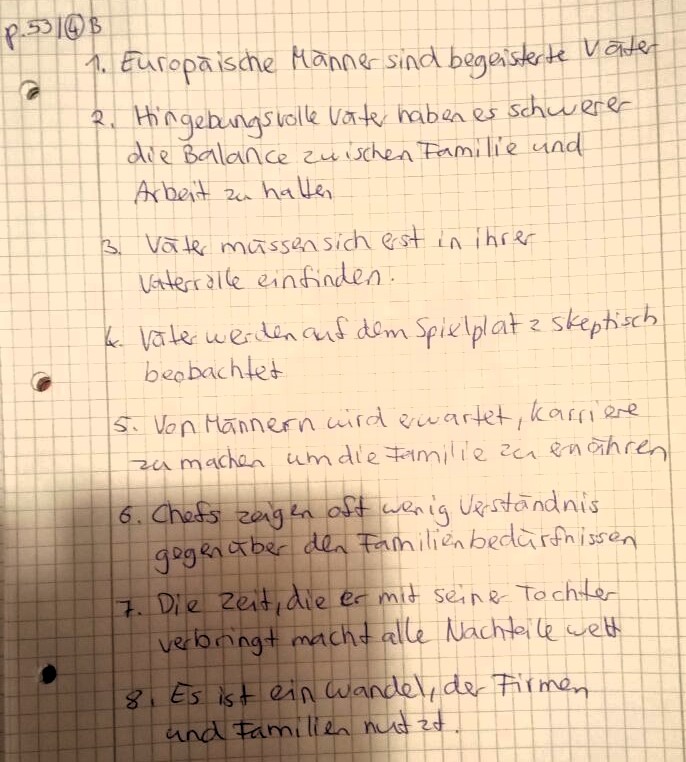 p.53/④B
1. Europäische Männer sind begeisterte Väter
2. Hingebungsvolle Väter haben es schwerer
die Balance zwischen Familie und
Arbeit zu halten
3. Väter müssen sich erst in ihrer
Vaterrolle einfinden.
4. Väter werden auf dem Spielplatz skeptisch
beobachtet
5. Von Männern wird erwartet, Karriere
zu machen um die Familie zu ernähren
6. Chefs zeigen oft wenig Verständnis
gegenüber den Familienbedürfnissen
7. Die Zeit, die er mit seiner Tochter
verbringt macht alle Nachteile wett
8. Es ist ein Wandel, der Firmen
und Familien nutzt.